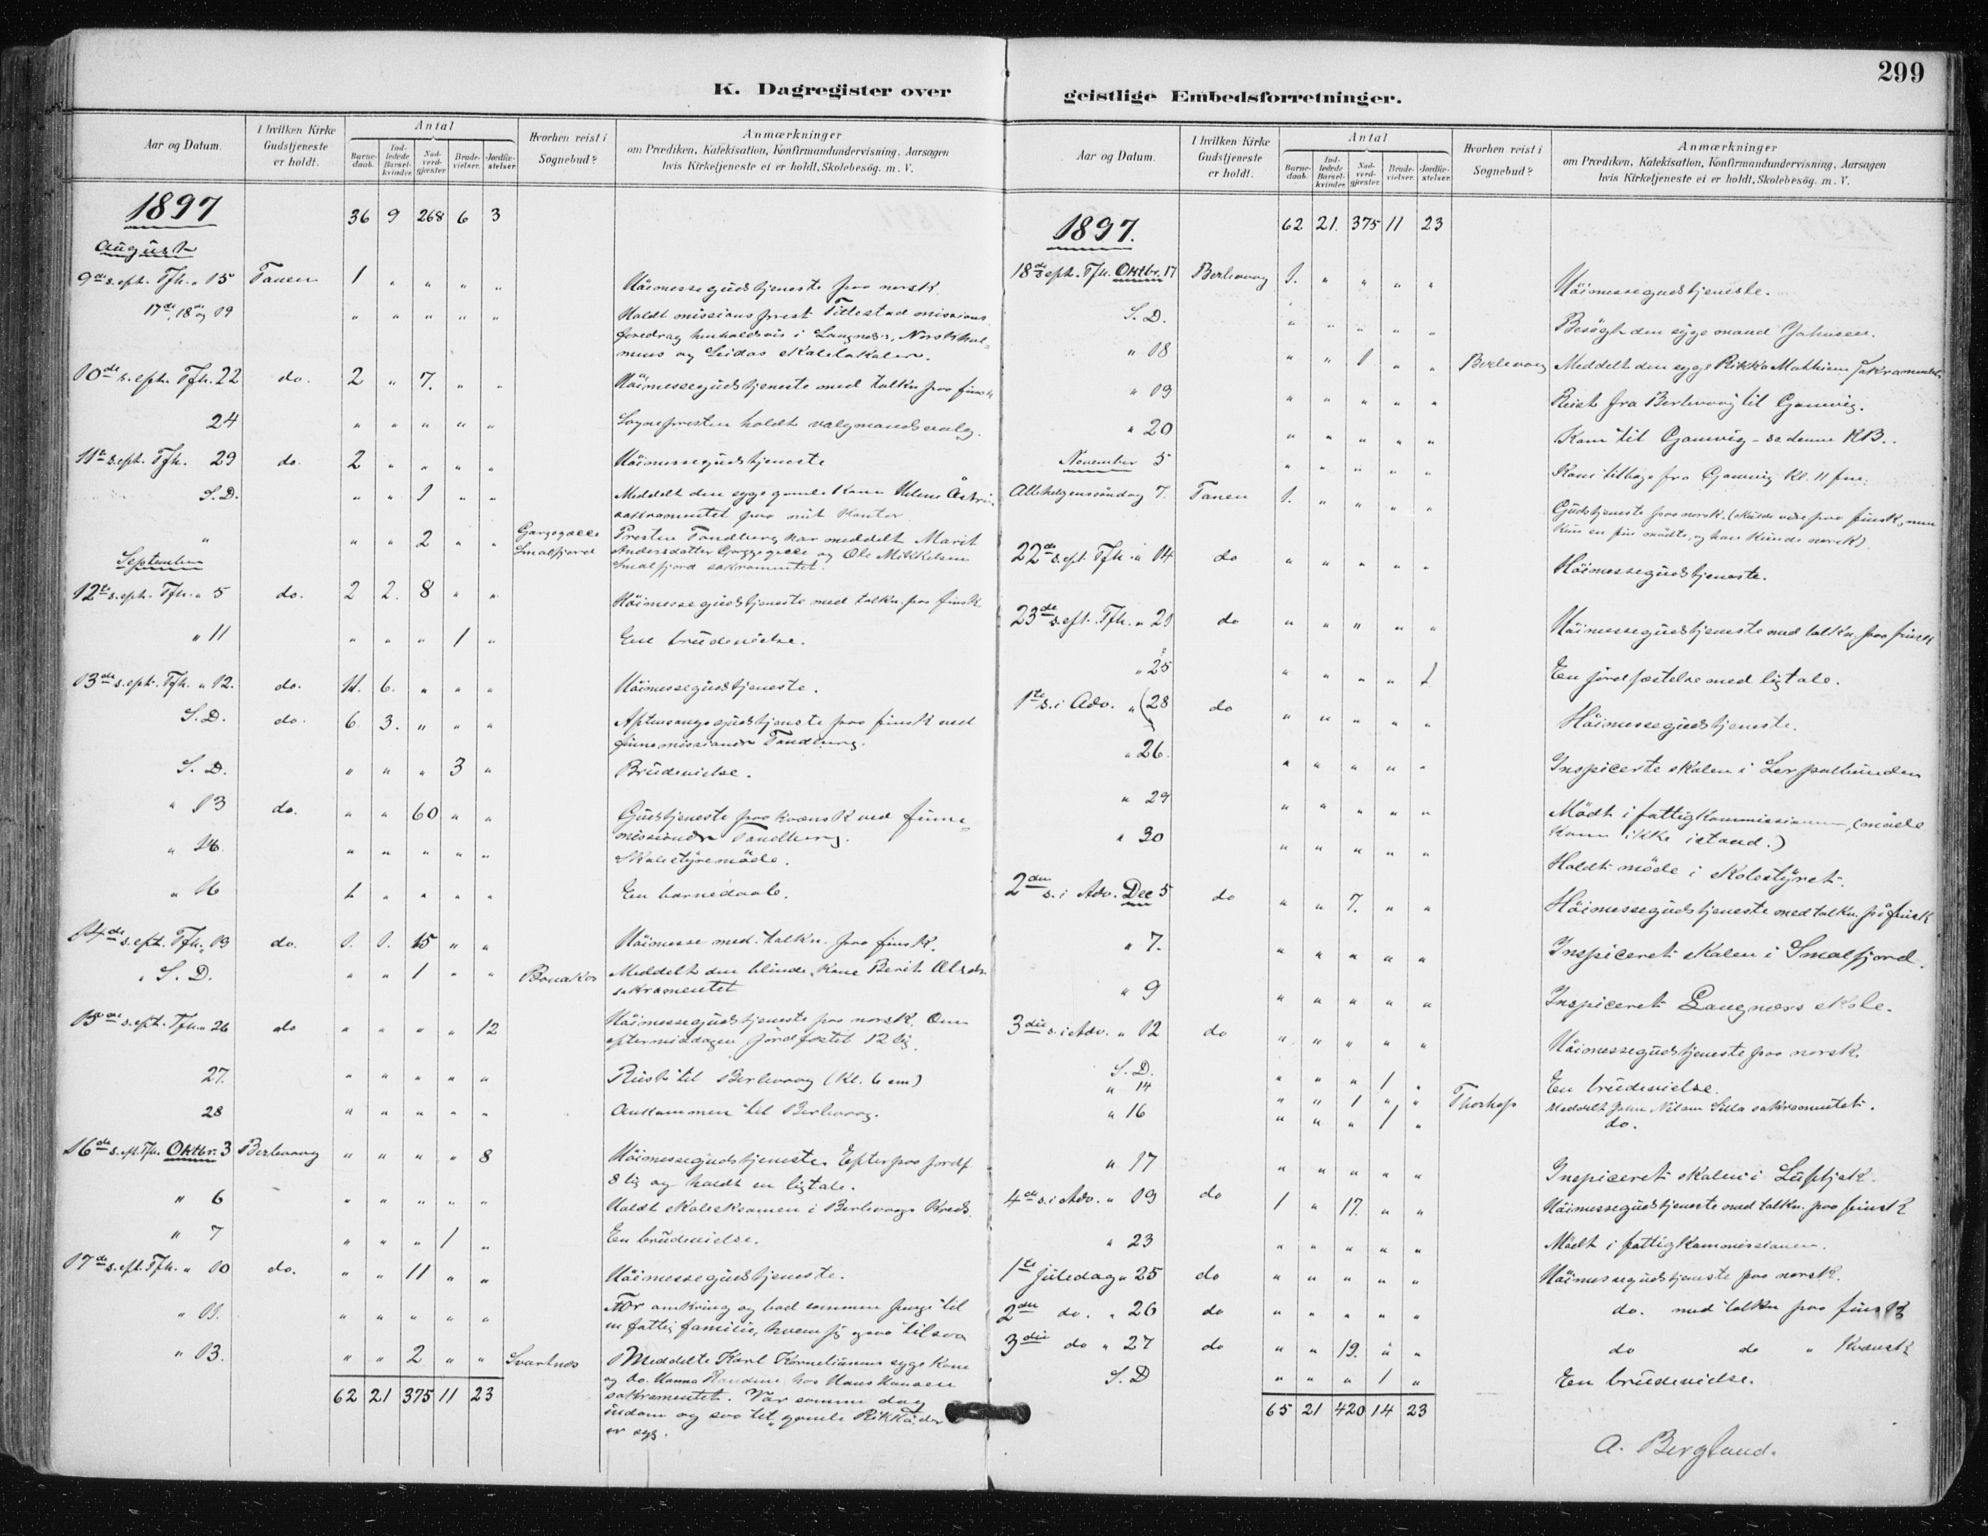 299
K. Dagregister over geistlige Embedsforretninger.
Aar og Datum.
I hvilken Kirke Gudstjeneste er holdt.
Antal
Barne-daab. Ind-ledede Barsel-kvinder. Nad-verd-gjester. Brude-vielser. Jordfæ-stelser.
Hvorhen reist i Sognebud?
Anmærkninger
om Prædiken, Katekisation, Konfirmandundervisning, Aarsagen
hvis Kirketjeneste ei er holdt, Skolebesøg. m. V.
1897 36 9 268 6 3
August
9de s. eft. Tfh. " 15 Tanen 1 " " " " Höimessegudstjeneste paa norsk
17de, 18de og 19 " " " " " Holdt missionsprest Tillestad missions
foredrag henholdsvis i Langnes, Norskhol-
mus og skolelokaler.
10de s. eft. Tfh. 22 do. 2 " 7. " " Höimessegudstjeneste med tolkn. paa finsk
24 " " " " " Sognepresten holdt valgmandsvalg.
11te s. eft. Tfh. 29 do. 2 " " " " Höimessegudstjeneste
S. D. " " 1 " " Meddelt den syge gamle kone Helene
sakramentet paa mit kontor
" " " 2 " " Smalfjord Presten Tandberg har meddelt Marit
Andersdatter og Ole Mikkelsen
Smalfjord sakramentet.
September
12te s. eft. Tfh. " 5 do. 2 2. 8 " " Höimessegudstjeneste med tolkn. paa finsk
" 11 " " " 1 " En brudevielse.
13de s. eft. Tfh. " 12. do. 6. " " " Höimessegudstjeneste.
S. D. do. 6. 3. " " " Aftensangsgudstjeneste paa finsk ved
finnemissionær Tandberg.
S. D. " " " 3 " Brudevielse.
" 13 do. " " 60 " " Gudstjeneste paa kvænsk ved finne-
missionær Tandberg.
" 14. " " " " " Skolestyremöde.
" 16 1 " " " " En barnedaab.
14de s. eft. Tfh. " 19 do. 1. 1. 15 " " Höimesse med tolkn. paa finsk.
" S. D. " " 1 " " Bonakas Meddelt den blinde kone Berit Olsdr.
sakramentet
15de s. eft. Tfh. " 26 do " " " " 12 Höimessegudstjeneste paa norsk. Om
eftermiddagen jordfæstet 12 lig.
27. " " " " " Reist til Berlevaag (Kl. 6 em)
28 " " " " " Ankommen til Berlevaag.
16de s. eft. Tfh. Oktbr. 3 Berlevaag " " " " 8 Höimessegudstjeneste. Efterpaa jordf.
8 lig og holdt en ligtale.
" 6 " " " " " Holdt skoleeksamen i Berlevaag Kreds.
" 7 " " " 1 " En brudevielse.
17de s. eft. Tfh. " 10 do. " " 11 " " Höimessegudstjeneste.
" 11. " " " " " For omkring og bad sammen penge til
en fattig familie, hvem jeg ogsaa tilsaa
" 13. " " 2 " " Svartnes Meddelte Karl Korneliussens syge kone
og do. Hanna hos Hans Hansen
sakramentet. Var samme dag
indom og saa til gamle
er syg.
62 21 375 11 23
Aar og Datum.
I hvilken Kirke Gudstjeneste er holdt.
Antal
Barne-daab. Ind-ledede Barsel-kvinder. Nad-verd-gjester. Brude-vielser. Jordfæ-stelser.
Hvorhen reist i Sognebud?
Anmærkninger
om Prædiken, Katekisation, Konfirmandundervisning, Aarsagen
hvis Kirketjeneste ei er holdt, Skolebesøg. m. V.
1897. 62 21. 375 11 23
18de s. eft. Tfh. Oktbr. 17 Berlevaag 1. " " " " Höimessegudstjeneste.
S. D. " " " " " Besögt den syge mand Johnsen.
" 18 " " 1 " " Berlevaag Meddelt den syge Rikka Mathisen sakramentet.
" 19 " " " " " Reist fra Berlevaag til Gamvig.
" 20 " " " " " Kom til Gamvig - se denne KB.
November 5 " " " " " Kom tilbage fra Gamvig Kl. 11 fm.
Allehelgenssöndag 7. Tanen 1. " " " " Gudstjeneste paa norsk. (skulde være paa finsk, men
kun en fin mödte, og han kunde norsk)
22de s. eft. Tfh. " 14 do " " " " " Höimessegudstjeneste.
23de s. eft. Tfh. " 21 do " " " " " Höimessegudstjeneste med tolkn. paa finsk
" 25 " " " " 1 En jordfæstelse med ligtale.
1te s. i Adv. " 28 do " " " " " Höimessegudstjeneste.
" 26 " " " " " Inspicerte skolen i
" 29 " " " " " Mödt i fattigkommissionen, (möde
kom ikke istand.)
" 30 " " " " " Holdt möde i Skolestyret.
2den s. i Adv. Dec 5 do " " 7. " " Höimessegudstjeneste med tolkn. på finsk
" 7. " " " " " Inspiceret skolen i Smalfjord.
" 9 " " " " " Inspiceret Langnæs skole.
3die s. i Adv. " 12 do " " " " " Höimessegudstjeneste paa norsk.
S. D. " " " 1 " En brudevielse.
" 14 " " 1 " " Thorhop Meddelt John Nilsen Silla sakramentet.
" 16 " " " 1 " do.
" 17 " " " " " Inspiceret skolen i Luftjok.
4de s. i Adv. " 19 do 1 " 17. " " Höimessegudstjeneste med tolkn. paa finsk
" 23 " " " " " Mödt i fattigkommissionen.
1te Juledag " 25 do " " " " " Höimessegudstjeneste paa norsk.
2den do. " 26 do " " " " " do. med tolkn paa finsk
3die do " 27 do " " 19. " " do do " Kvænsk
S. D " " " 1 " En brudevielse.
65 21 420 14 23
A. Bergland.